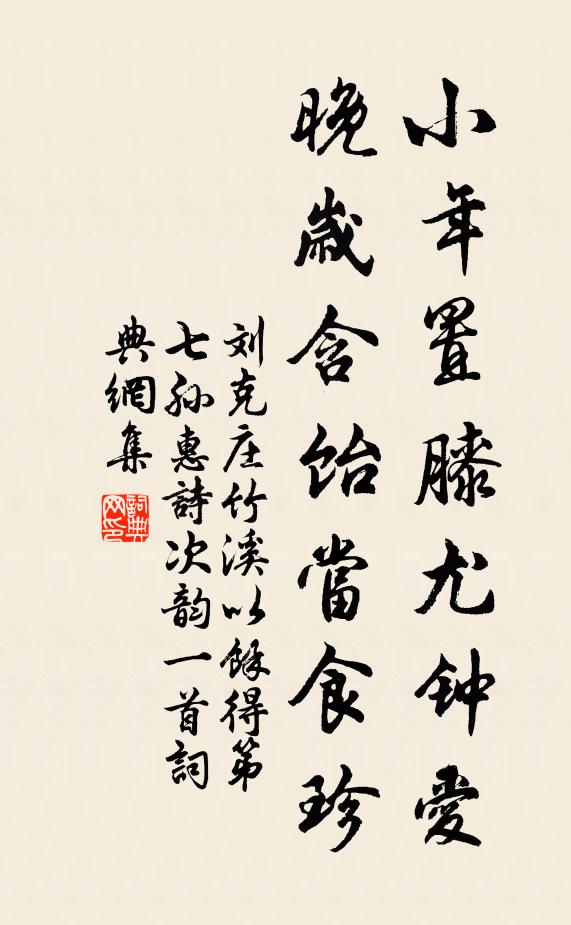 小年置膝尤钟愛
晚歲含饴當食珍
刘克庄竹溪以餘得第
七孙惠詩次韵一首詞
典網集
詞典网印